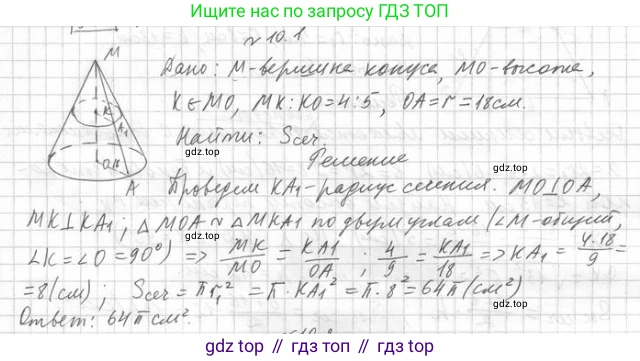 Ищите нас по запросу ГДЗ ТОП
№ 10.1
M
Дано: M-вершина конуса, MO-высота,
K∈MO, MK:KO=4:5, OA=r=18см.
Найти: Sсеч
gdz.top
gdz.top
Решение
K
K1
O
A
Проведем KA1-радиус сечения. MO⊥OA,
MK⊥KA1; △MOA ~ △MKA1 по двум углам (∠M-общий,
∠K=∠O=90°) => MK/MO = KA1/OA; 4/9 = KA1/18 => KA1 = 4·18/9 =
=8(см); Sсеч = πr1² = π·KA1² = π·8² = 64π(см²)
gdz.top
gdz.top
Ответ: 64π см².
gdz.top // gdz.top // gdz.top